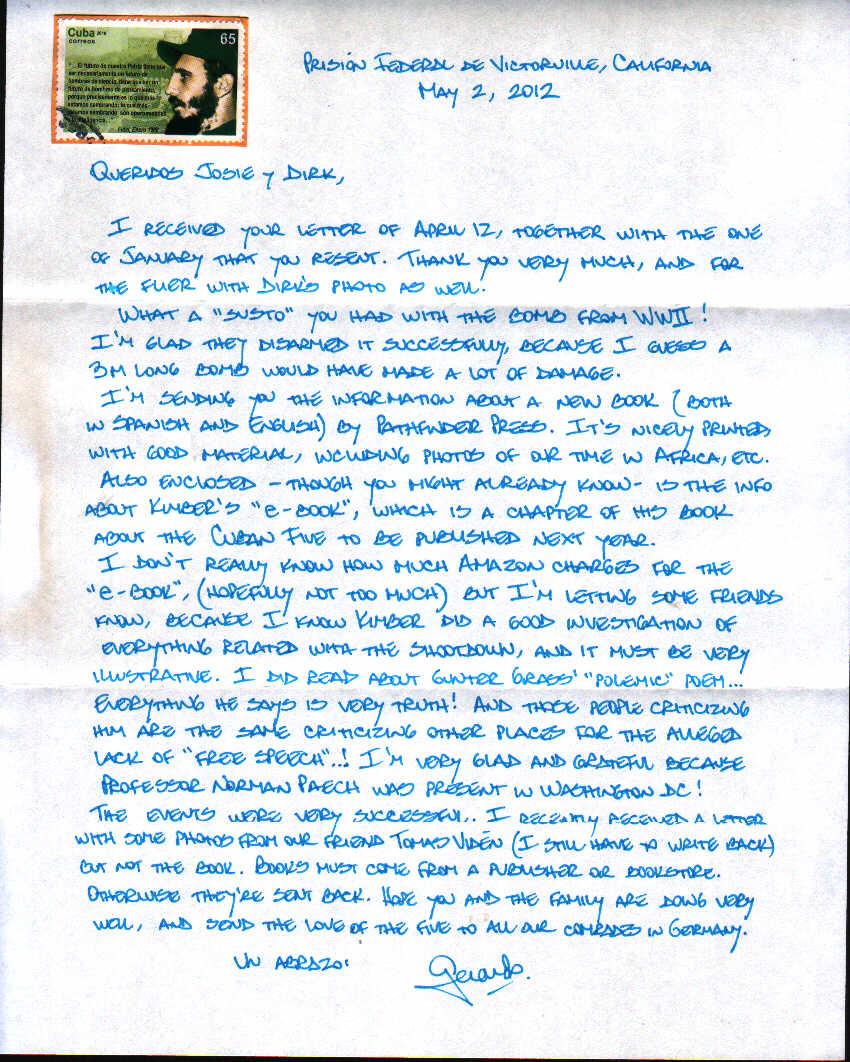 Cuba
correos
65
PRISIÓN FEDERAL DE VICTORVILLE, CALIFORNIA
MAY 2, 2012
QUERIDOS JOSIE Y DIRK,
I RECEIVED YOUR LETTER OF APRIL 12, TOGETHER WITH THE ONE
OF JANUARY THAT YOU RESENT. THANK YOU VERY MUCH, AND FOR
THE FLIER WITH DIRK'S PHOTO AS WELL.
WHAT A "SUSTO" YOU HAD WITH THE BOMB FROM WWII!
I'M GLAD THEY DISARMED IT SUCCESSFULLY, BECAUSE I GUESS A
3M LONG BOMB WOULD HAVE MADE A LOT OF DAMAGE.
I'M SENDING YOU THE INFORMATION ABOUT A NEW BOOK (BOTH
IN SPANISH AND ENGLISH) BY PATHFINDER PRESS. IT'S NICELY PRINTED
WITH GOOD MATERIAL, INCLUDING PHOTOS OF OUR TIME IN AFRICA, ETC.
ALSO ENCLOSED - THOUGH YOU MIGHT ALREADY KNOW - IS THE INFO
ABOUT KIMBER'S "e-BOOK", WHICH IS A CHAPTER OF HIS BOOK
ABOUT THE CUBAN FIVE TO BE PUBLISHED NEXT YEAR.
I DON'T REALLY KNOW HOW MUCH AMAZON CHARGES FOR THE
"e-BOOK", (HOPEFULLY NOT TOO MUCH) BUT I'M LETTING SOME FRIENDS
KNOW, BECAUSE I KNOW KIMBER DID A GOOD INVESTIGATION OF
EVERYTHING RELATED WITH THE SHOOTDOWN, AND IT MUST BE VERY
ILLUSTRATIVE. I DID READ ABOUT GUNTER GRASS' "POLEMIC" POEM...
EVERYTHING HE SAYS IS VERY TRUTH! AND THOSE PEOPLE CRITICIZING
HIM ARE THE SAME CRITICIZING OTHER PLACES FOR THE ALLEGED
LACK OF "FREE SPEECH"..! I'M VERY GLAD AND GRATEFUL BECAUSE
PROFESSOR NORMAN PAECH WAS PRESENT IN WASHINGTON DC!
THE EVENTS WERE VERY SUCCESSFUL. I RECENTLY RECEIVED A LETTER
WITH SOME PHOTOS FROM OUR FRIEND TOMAS VIDÉN (I STILL HAVE TO WRITE BACK)
BUT NOT THE BOOK. BOOKS MUST COME FROM A PUBLISHER OR BOOKSTORE.
OTHERWISE THEY'RE SENT BACK. HOPE YOU AND THE FAMILY ARE DOING VERY
WELL, AND SEND THE LOVE OF THE FIVE TO ALL OUR COMRADES IN GERMANY.
UN ABRAZO!
Gerardo.